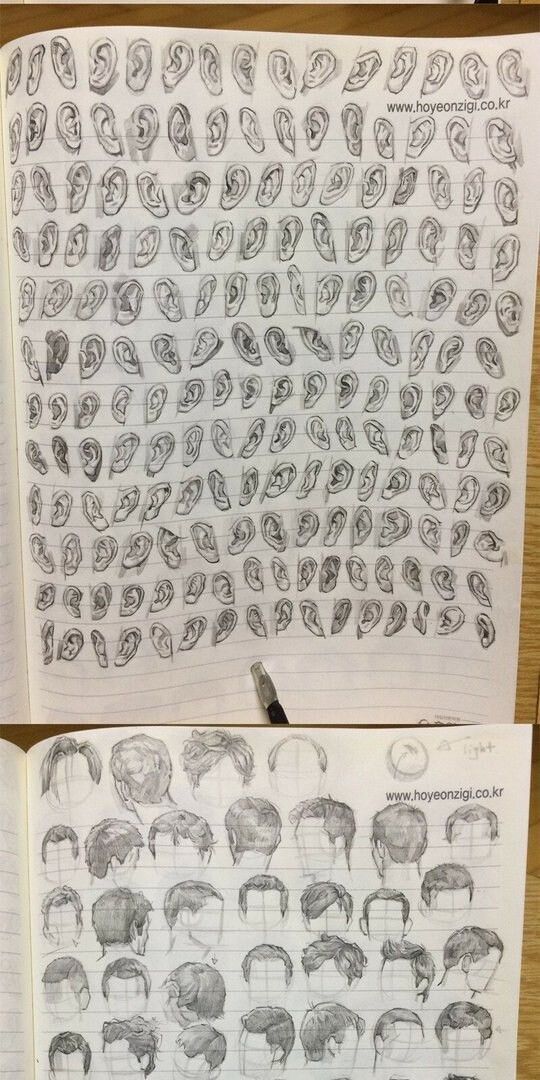 www.hoyeonzigi.co.kr
light
www.hoyeonzigi.co.kr